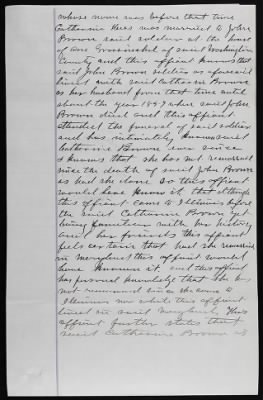 whose name was before that time
Catharine Hees was married to John
Brown said soldier at the house
of one Grossnickel of said Washington
County and this affiant knows that
said John Brown soldier as aforesaid
lived with said Catharine Brown
as her husband from that time until
about the year 1857 when said John
Brown died and this affiant
attended the funeral of said soldier
and has intimately known said
Catharine Brown ever since
& knows that she has not remarried
since the death of said John Brown
as had she done so this affiant
would have known it, that although
this affiant came to Illinois before
the said Catharine Brown yet
being familiar with her history
and her friends this affiant
feels certain that had she remarried
in maryland this affiant would
have known it, and this affiant
has personal knowledge that she has
not remarried since she came to
Illinois nor while this affiant
lived in said maryland. This
affiant further states that
said Catharine Brown is